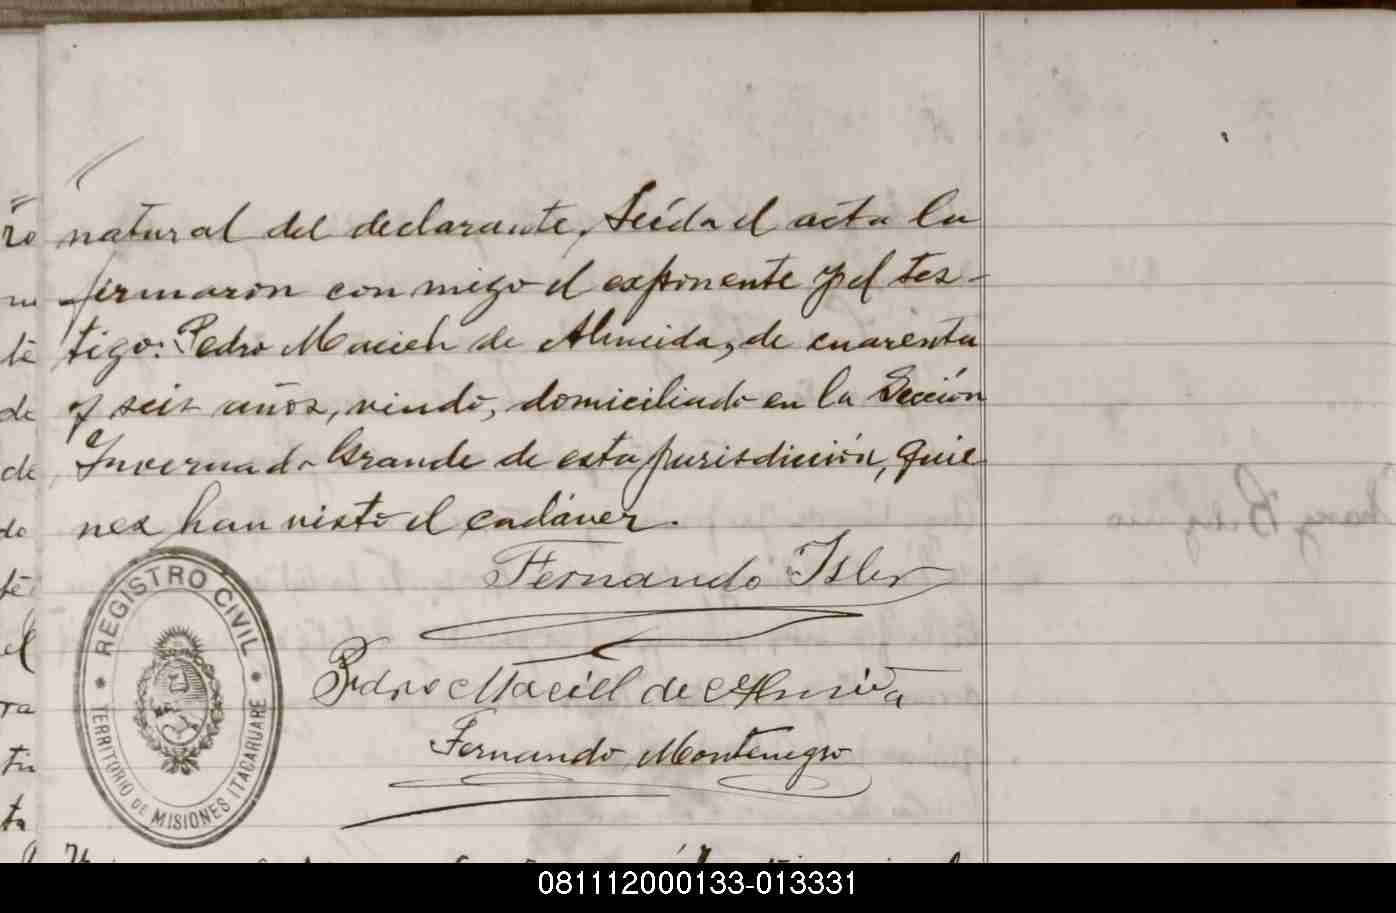 natural del declarante, Leída el acta la
firmaron con migo el exponente y el tes-
tigo: Pedro Maciel de Almeida, de cuarenta
y seis años, viudo, domiciliado en la Sección
Invernada Grande de esta jurisdicción, quie
nes han visto el cadáver.
Fernando Isler
Pedro Maciel de Almeida
Fernando Montenegro
REGISTRO CIVIL
TERRITORIO DE MISIONES ITACARUARE
ro
te
de
de
do
te
el
ra
tu
ta
081112000133-013331